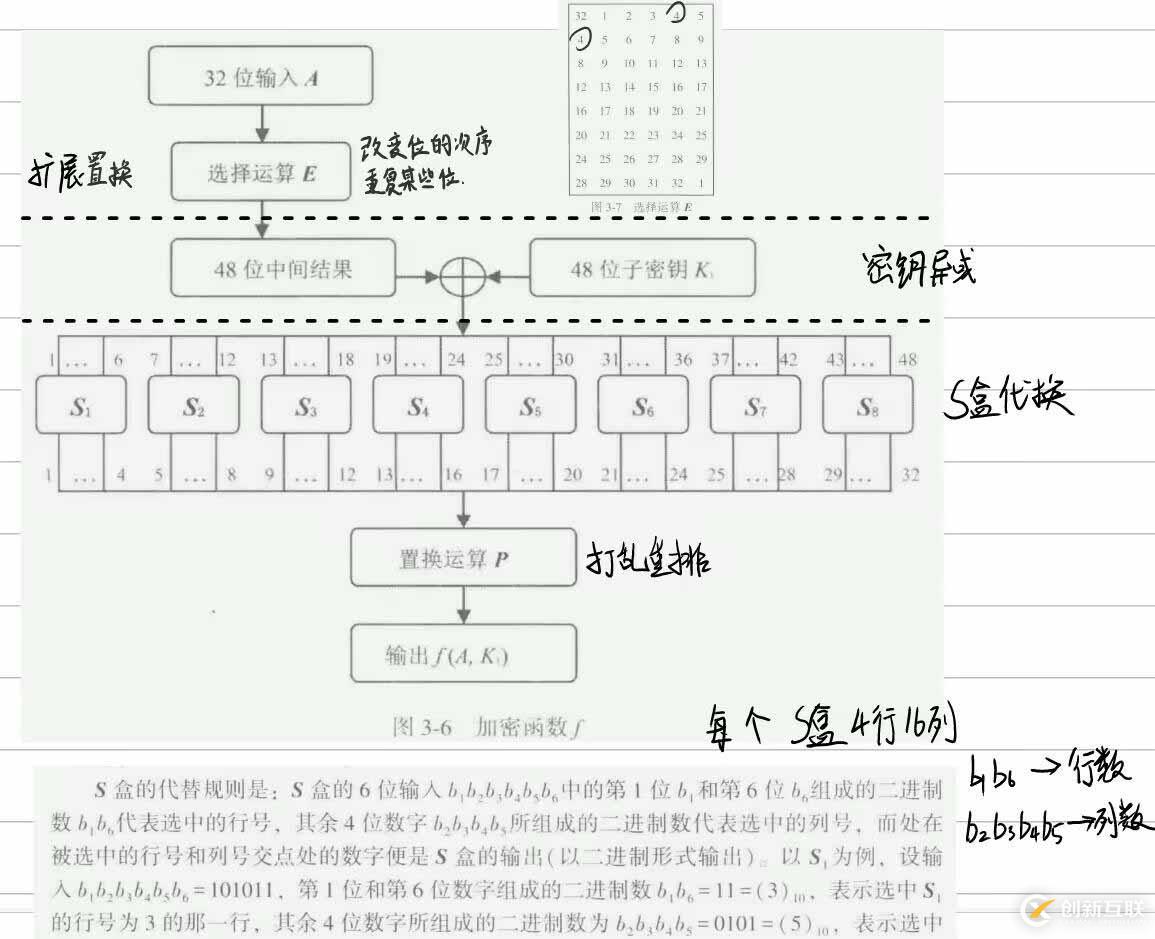 32 1 2 3 4 5
4 5 6 7 8 9
8 9 10 11 12 13
12 13 14 15 16 17
16 17 18 19 20 21
20 21 22 23 24 25
24 25 26 27 28 29
28 29 30 31 32 1
图 3-7 选择运算 E
32 位输入 A
扩展置换
选择运算 E
改变位的次序
重复某些位.
48 位中间结果
48 位子密钥 Ki
密钥异或
1 … 6 7 … 12 13 … 18 19 … 24 25 … 30 31 … 36 37 … 42 43 … 48
S1 S2 S3 S4 S5 S6 S7 S8
S盒代换
1 … 4 5 … 8 9 … 12 13 … 16 17 … 20 21 … 24 25 … 28 29 … 32
置换运算 P
打乱重排
输出 f(A, Ki)
图 3-6 加密函数 f
每个 S盒 4行16列
b1b6 → 行数
b2b3b4b5 → 列数
S 盒的代替规则是：S 盒的 6 位输入 b1b2b3b4b5b6 中的第 1 位 b1 和第 6 位 b6 组成的二进制
数 b1b6 代表选中的行号，其余 4 位数字 b2b3b4b5 所组成的二进制数代表选中的列号，而处在
被选中的行号和列号交点处的数字便是 S 盒的输出(以二进制形式输出)。以 S1 为例，设输
入 b1b2b3b4b5b6=101011，第 1 位和第 6 位数字组成的二进制数 b1b6=11=(3)10，表示选中 S1
的行号为 3 的那一行，其余 4 位数字所组成的二进制数为 b2b3b4b5=0101=(5)10，表示选中
创新互联